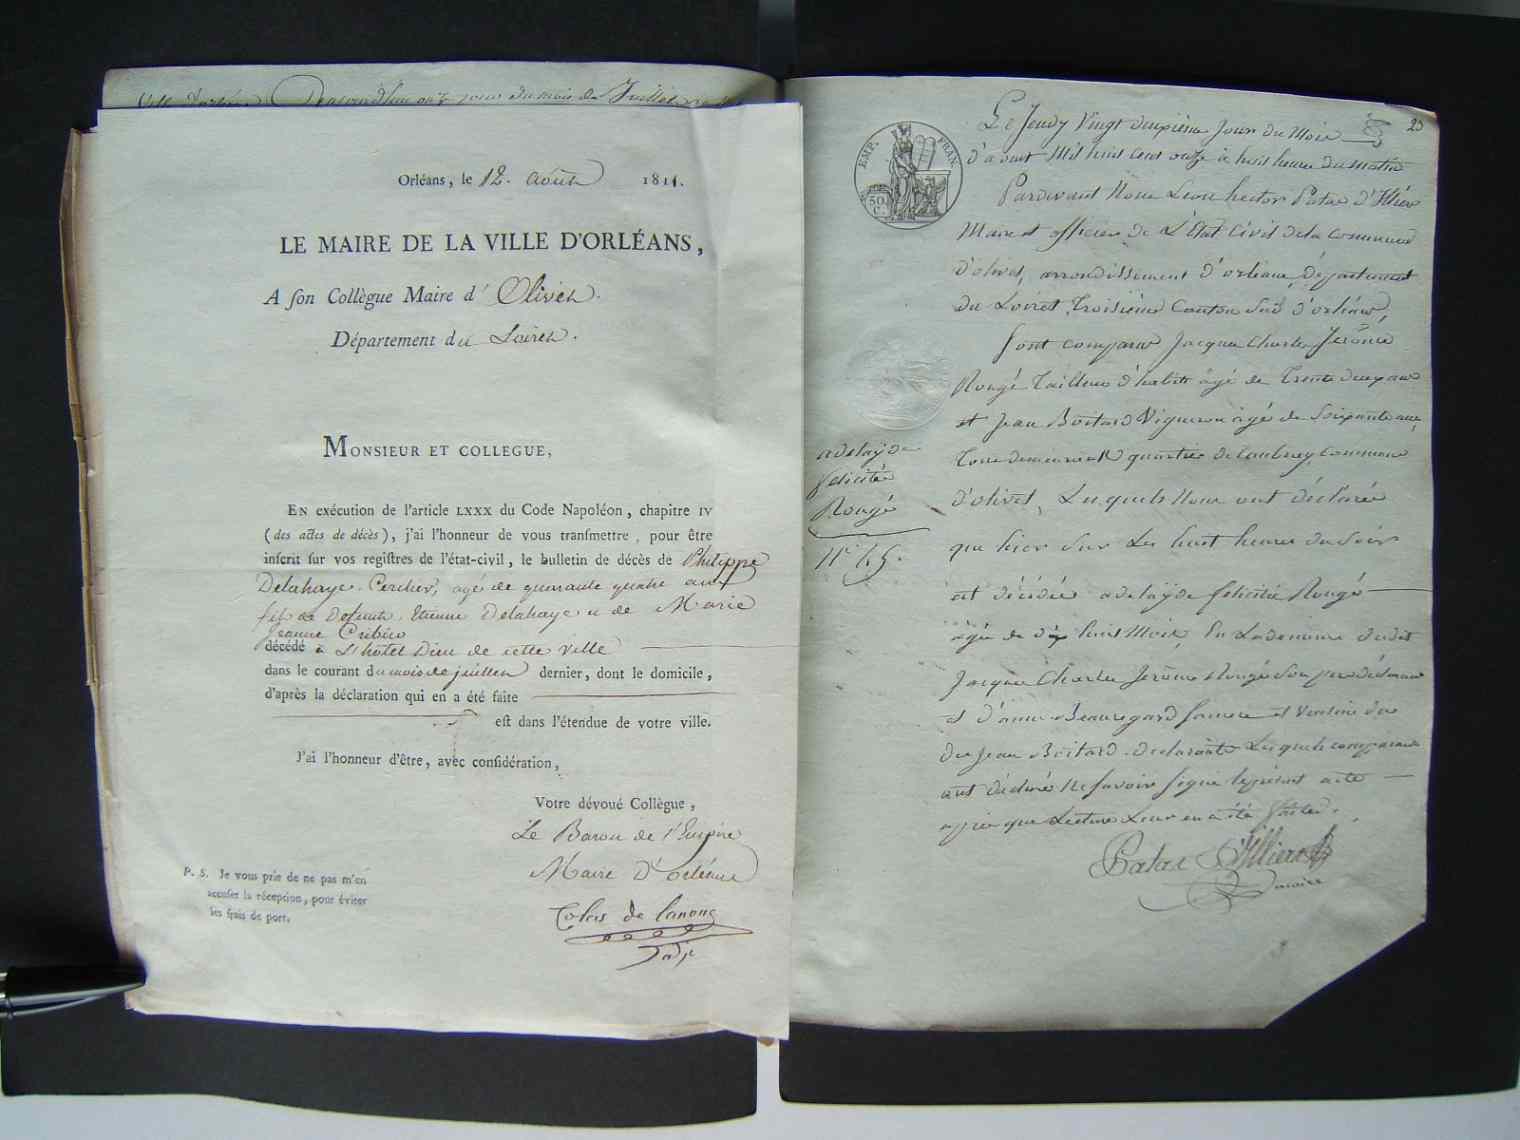 Orléans, le 12. Août 1811.
LE MAIRE DE LA VILLE D'ORLÉANS,
A son Collègue Maire d' Olivet.
Département du Loiret.
MONSIEUR ET COLLEGUE,
EN exécution de l'article LXXX du Code Napoléon, chapitre IV
(des actes de décès), j'ai l'honneur de vous transmettre, pour être
inscrit sur vos registres de l'état-civil, le bulletin de décès de Philippe
Delahaye. Cerclier, agé de quarante quatre ans
fils de Defunts Etienne Delahaye et de Marie
Jeanne
décédé à L'hôtel Dieu de cette ville
dans le courant du mois de juillet dernier, dont le domicile,
d'après la déclaration qui en a été faite
est dans l'étendue de votre ville.
J'ai l'honneur d'être, avec considération,
Votre dévoué Collègue,
Le Baron de l'Empire
Maire d'Orléans
Colas de lanoue
adj.
P. S. Je vous prie de ne pas m'en
accuser la réception, pour éviter
les frais de port.
EMP. FRAN.
50 C.
25
Le Jeudy Vingt deuxième Jour du Mois
d'aout Mil huit cent onze à huit heure du matin
Pardevant Nous Leon hector Patas d'Illiers
Maire et officier de L'Etat Civil de la commune
d'olivet, arrondissement d'orleans, département
du Loiret, troisième Canton Sud d'orléans,
Sont comparus Jacques Charles Jerôme
Rougé Tailleur d'habits âgé de trente deux ans
et Jean Boitard Vigneron âgé de Soixante ans,
tous demeurant quartier de commune
d'olivet, Lesquels Nous ont déclarée
que hier Sur Les huit heures du Soir
est décédée adelayde felicitée Rougé
âgée de dix huit Mois, En La demeure dudit
Jacques Charles Jerôme Rougé Son pere
et d'anne Beauregard femme et voisine
du Jean Boitard declarants Lesquels comparans
ont déclaré Ne Savoir Signé le présent acte
après que Lecture Leur en a été faite.
Patas d'Illiers
maire
adelayde
felicitée
Rougé
N° 45.